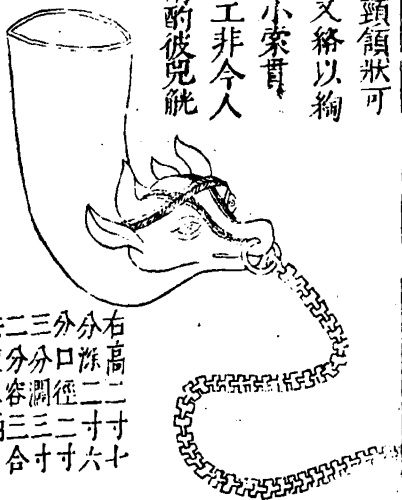 頸領狀可
又絡以綯
小索貫
工非今人
酌彼兕觥
右高二寸七
分深二寸六
分口徑二寸
三分濶三寸
二分容三合